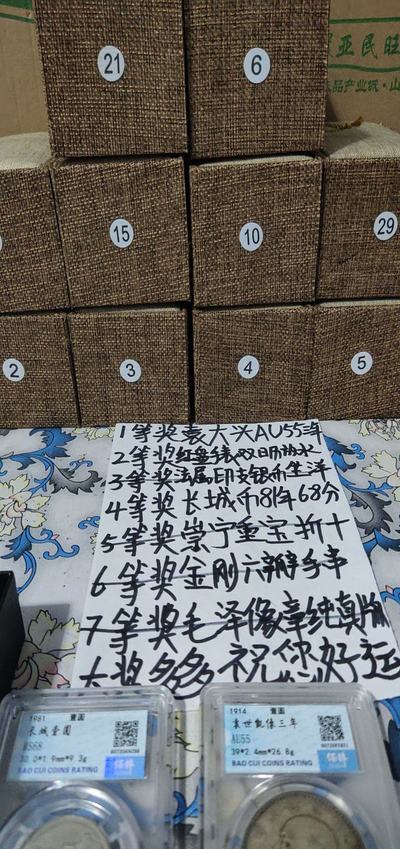 亚民旺
品产业城·山
21
6
15
10
29
2
3
4
5
1等奖袁大头AU55洋
2等奖
3等奖法属印支银币坐洋
4等奖长城币81年68分
5等奖崇宁重宝折十
6等奖金刚六瓣手串
7等奖毛泽像章纯真版
大奖多多祝您好运
1981 壹圆
长城壹圆
MS68
30.0*1.9mm*9.3g
BAO CUI COINS RATING
1914 壹圆
袁世凯像三年
AU55
39*2.4mm*26.8g
BAO CUI COINS RATING